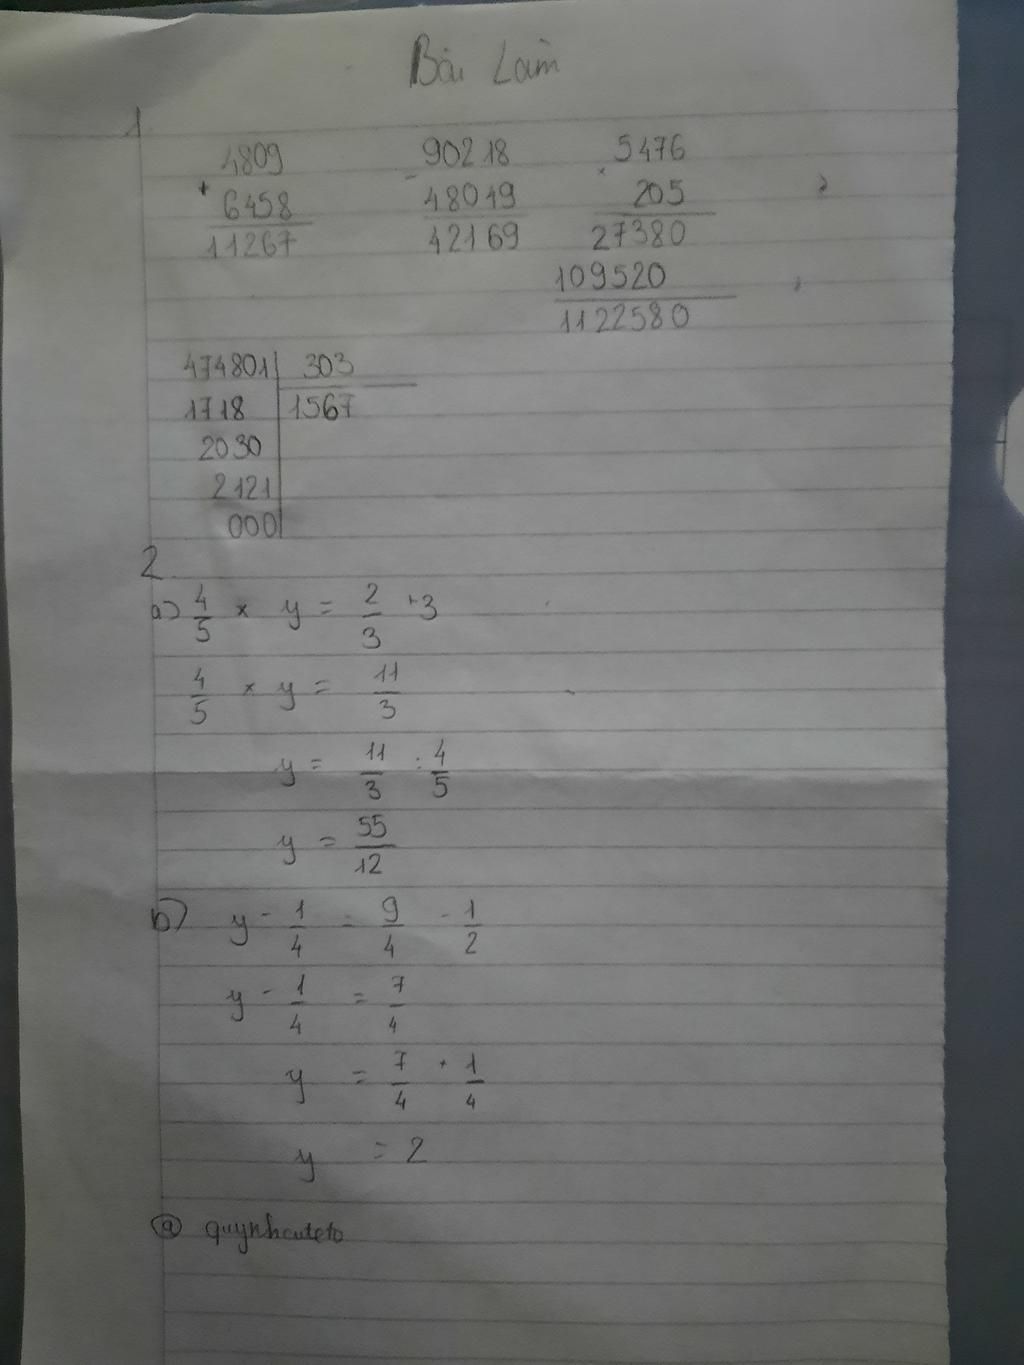 Bài Làm
1
4809 90218 5476
+ - ×
6458 48049 205
11267 42169 27380
109520
1122580
474801 303
1718 1567
2030
2121
000
2
a) 4/5 × y = 2/3 + 3
4/5 × y = 11/3
y = 11/3 : 4/5
y = 55/12
b) y - 1/4 = 9/4 - 1/2
y - 1/4 = 7/4
y = 7/4 + 1/4
y = 2
@ quynhcuteto